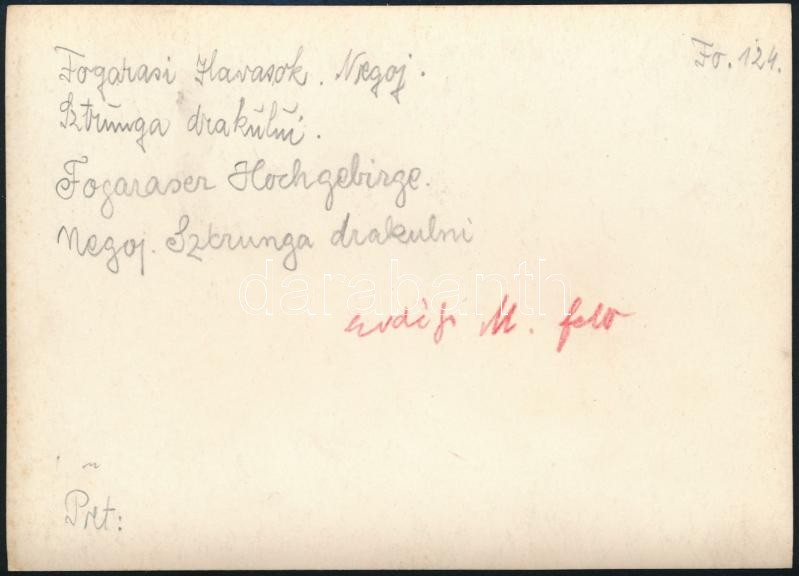 Fogarasi Havasok. Negoj.
Fo. 124.
Sztrunga drakului.
Fogaraser Hochgebirge.
Negoj. Sztrunga drakului
darabanth
M. felv
Prt: